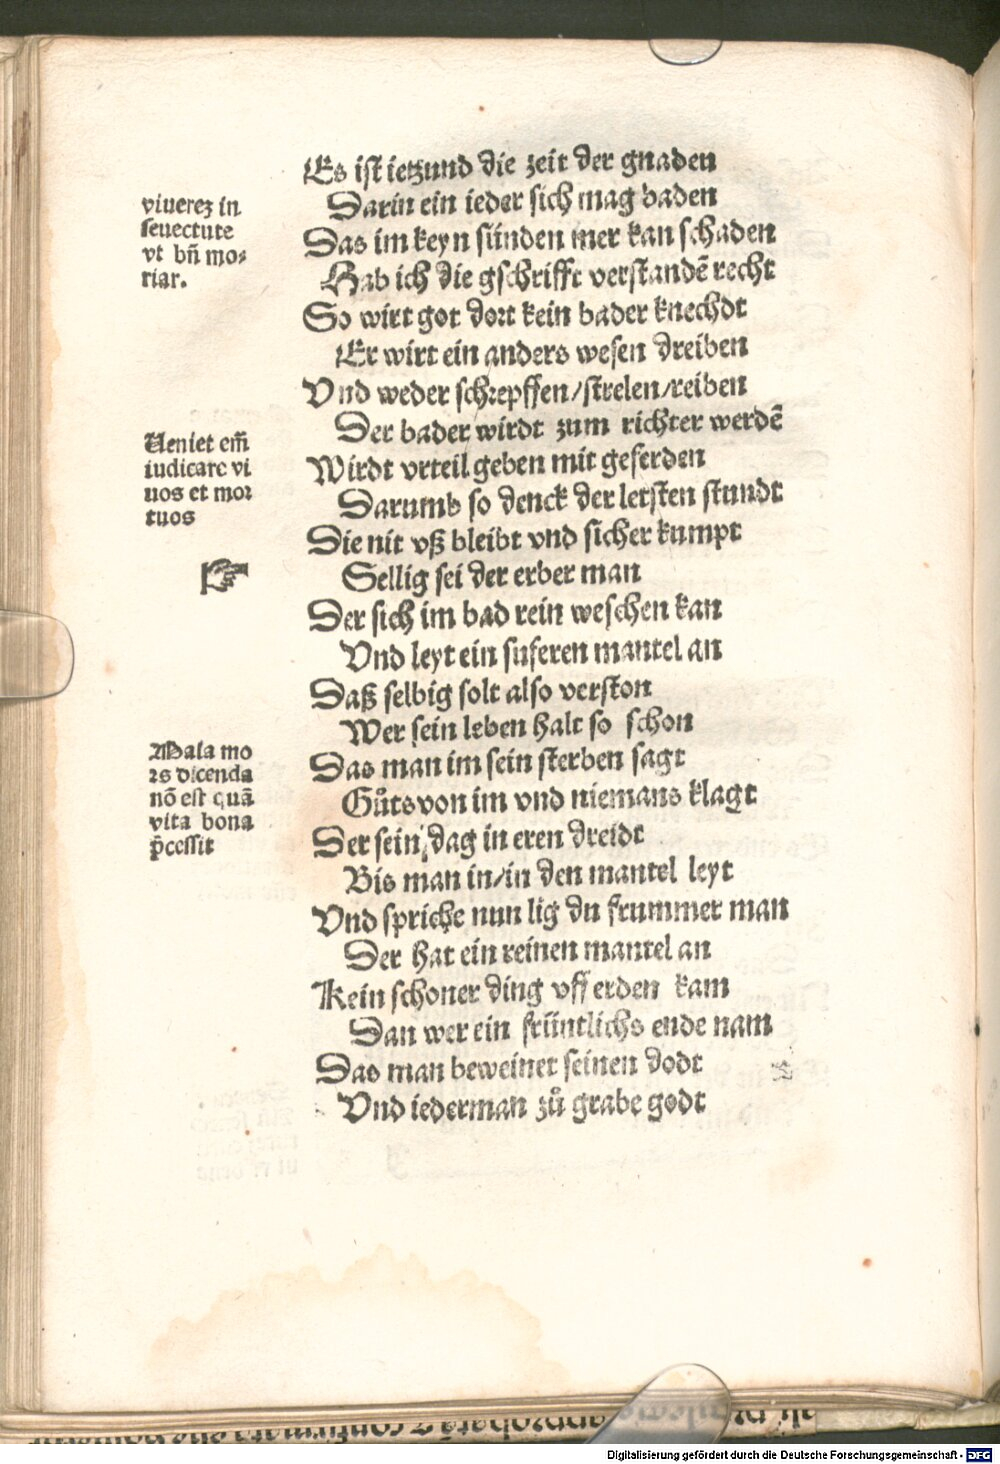 Es ist ietzund die zeit der gnaden
Darin ein ieder sich mag baden
Das im keyn sünden mer kan schaden
Hab ich die gschrifft verstandē recht
So wirt got dort kein bader knechdt
Er wirt ein anders wesen dreiben
Vnd weder schrepffen/strelen/reiben
Der bader wirdt zum richter werdē
Wirdt vrteil geben mit geferden
Darumb so denck der letsten stundt
Die nit vß bleibt vnd sicher kumpt
Sellig sei der erber man
Der sich im bad rein weschen kan
Vnd leyt ein suferen mantel an
Daß selbig solt also verston
Wer sein leben halt so schon
Das man im sein sterben sagt
Gůts von im vnd niemans klagt
Der sein dag in eren dreidt
Bis man in/in den mantel leyt
Vnd spricht nun lig du frummer man
Der hat ein reinen mantel an
Kein schoner ding vff erden kam
Dan wer ein früntlichs ende nam
Das man beweinet seinen dodt
Vnd iederman zů grabe godt
viuereꝫ in
seuectute
vt bn̄ mo-
riar.
Ueniet em̄
iudicare vi
uos et mor
tuos
☞
Mala mo
rs dicenda
nō est quā
vita bona
p̄cessit
Digitalisierung gefördert durch die Deutsche Forschungsgemeinschaft - DFG